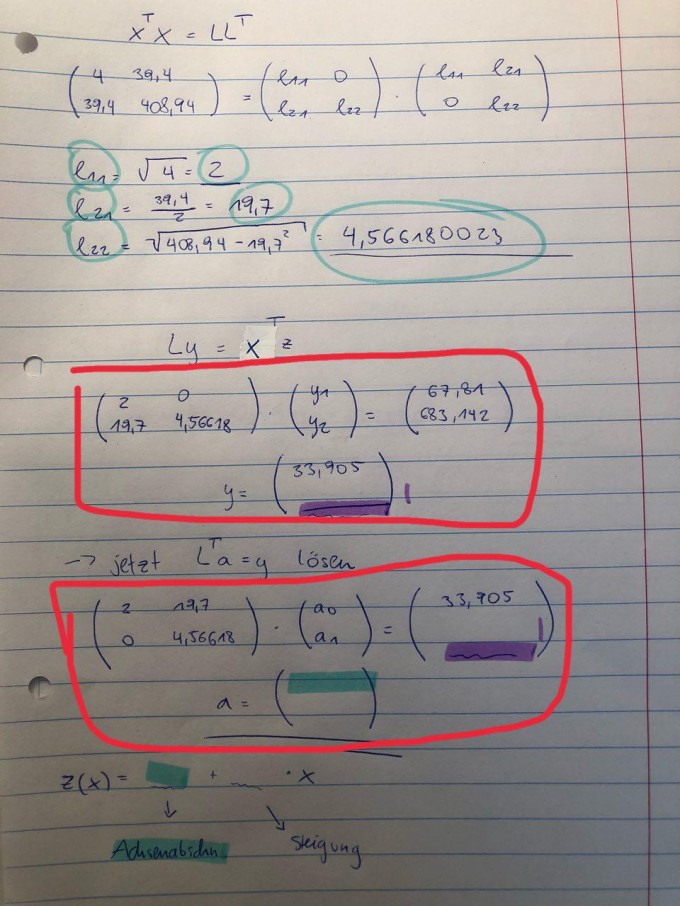 X^T X = LL^T
( 4 39,4 ; 39,4 408,94 ) = ( l11 0 ; l21 l22 ) · ( l11 l21 ; 0 l22 )
l11 = √4 = 2
l21 = 39,4/2 = 19,7
l22 = √(408,94 - 19,7²) = 4,566180023
Ly = X^T z
( 2 0 ; 19,7 4,56618 ) · ( y1 ; y2 ) = ( 67,81 ; 683,142 )
y = ( 33,905 ; __ )
-> jetzt L^T a = y lösen
( 2 19,7 ; 0 4,56618 ) · ( a0 ; a1 ) = ( 33,905 ; __ )
a = ( )
z(x) = __ + __ · x
↓ ↘
Achsenabschn. Steigung